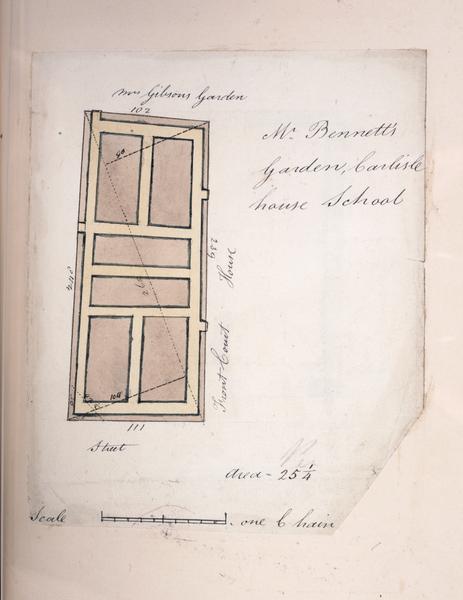 Mrs Gibsons Garden
102
Mr Bennett's
Garden, Carlisle
house School
90
239
House
Front Court
104
111
Street
Area - 25 1/4
Scale
one Chain